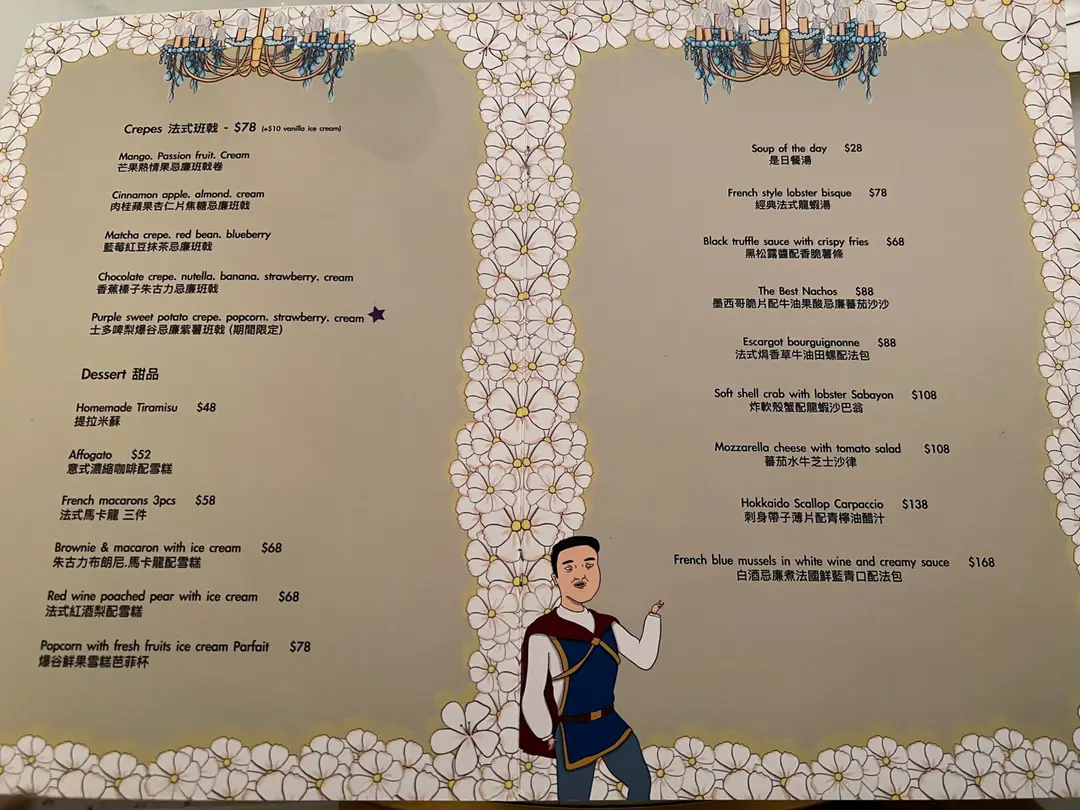 Crepes 法式班戟 - $78 (+$10 vanilla ice cream)
Mango. Passion fruit. Cream
芒果熱情果忌廉班戟卷
Cinnamon apple. almond. cream
肉桂蘋果杏仁片焦糖忌廉班戟
Matcha crepe. red bean. blueberry
藍莓紅豆抹茶忌廉班戟
Chocolate crepe. nutella. banana. strawberry. cream
香蕉榛子朱古力忌廉班戟
Purple sweet potato crepe. popcorn. strawberry. cream
士多啤梨爆谷忌廉紫薯班戟 (期間限定)
Dessert 甜品
Homemade Tiramisu $48
提拉米蘇
Affogato $52
意式濃縮咖啡配雪糕
French macarons 3pcs $58
法式馬卡龍 三件
Brownie & macaron with ice cream $68
朱古力布朗尼.馬卡龍配雪糕
Red wine poached pear with ice cream $68
法式紅酒梨配雪糕
Popcorn with fresh fruits ice cream Parfait $78
爆谷鮮果雪糕芭菲杯
Soup of the day $28
是日餐湯
French style lobster bisque $78
經典法式龍蝦湯
Black truffle sauce with crispy fries $68
黑松露醬配香脆薯條
The Best Nachos $88
墨西哥脆片配牛油果酸忌廉蕃茄沙沙
Escargot bourguignonne $88
法式焗香草牛油田螺配法包
Soft shell crab with lobster Sabayon $108
炸軟殼蟹配龍蝦沙巴翁
Mozzarella cheese with tomato salad $108
蕃茄水牛芝士沙律
Hokkaido Scallop Carpaccio $138
刺身帶子薄片配青檸油醋汁
French blue mussels in white wine and creamy sauce $168
白酒忌廉煮法國鮮藍青口配法包